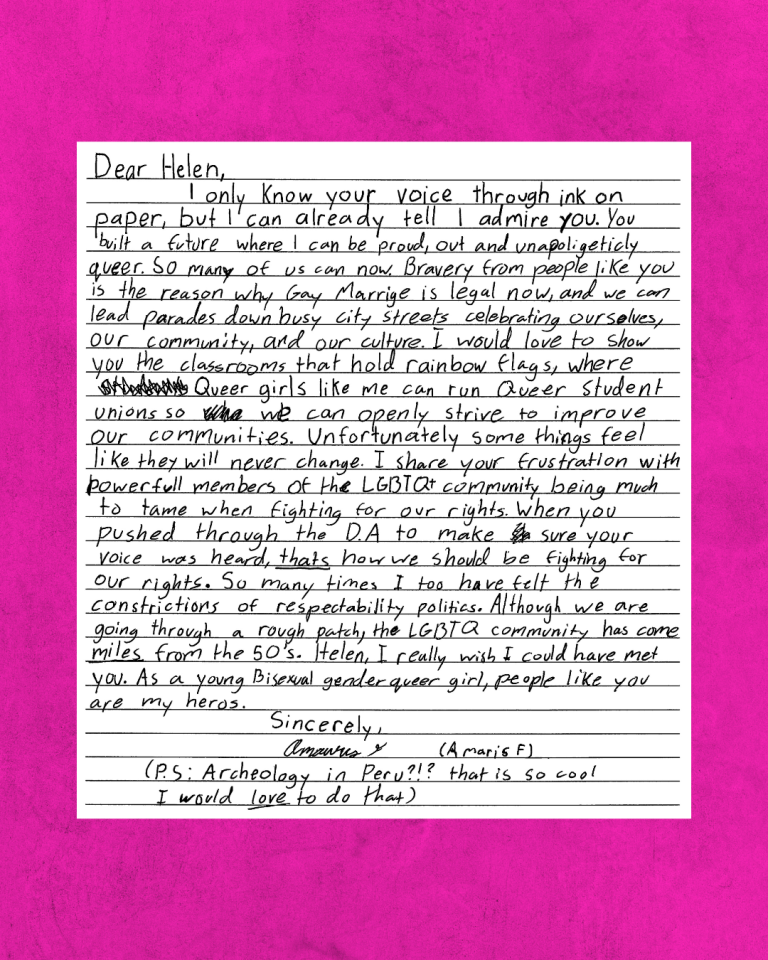 Dear Helen,
I only know your voice through ink on
paper, but I can already tell I admire you. You
built a future where I can be proud, out and unapoligeticly
queer. So many of us can now. Bravery from people like you
is the reason why Gay Marrige is legal now, and we can
lead parades down busy city streets celebrating ourselves,
our community, and our culture. I would love to show
you the classrooms that hold rainbow flags, where
Queer girls like me can run Queer Student
unions so we can openly strive to improve
our communities. Unfortunately some things feel
like they will never change. I share your frustration with
powerfull members of the LGBTQ+ community being much
to tame when fighting for our rights. When you
pushed through the D.A to make sure your
voice was heard, thats how we should be fighting for
our rights. So many times I too have felt the
constrictions of respectability politics. Although we are
going through a rough patch, the LGBTQ community has come
miles from the 50's. Helen, I really wish I could have met
you. As a young Bisexual genderqueer girl, people like you
are my heros.
Sincerely,
(Amaris F)
(P.S: Archeology in Peru?!? that is so cool
I would love to do that)